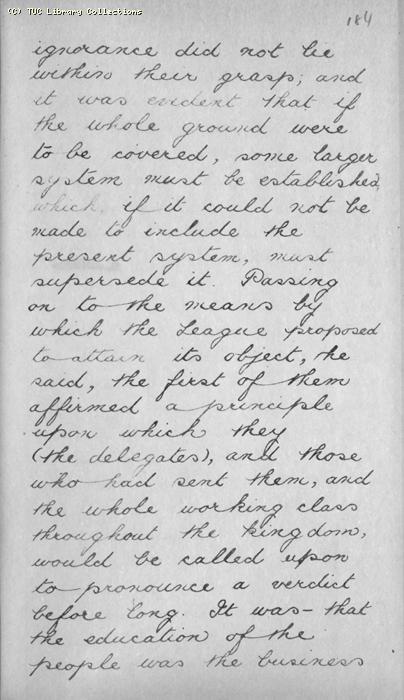 (C) TUC Library Collections
184
ignorance did not lie
within their grasp; and
it was evident that if
the whole ground were
to be covered, some larger
system must be established,
which, if it could not be
made to include the
present system, must
supersede it. Passing
on to the means by
which the League proposed
to attain its object, he
said, the first of them
affirmed a principle
upon which they
(the delegates), and those
who had sent them, and
the whole working class
throughout the kingdom,
would be called upon
to pronounce a verdict
before long. It was - that
the education of the
people was the business